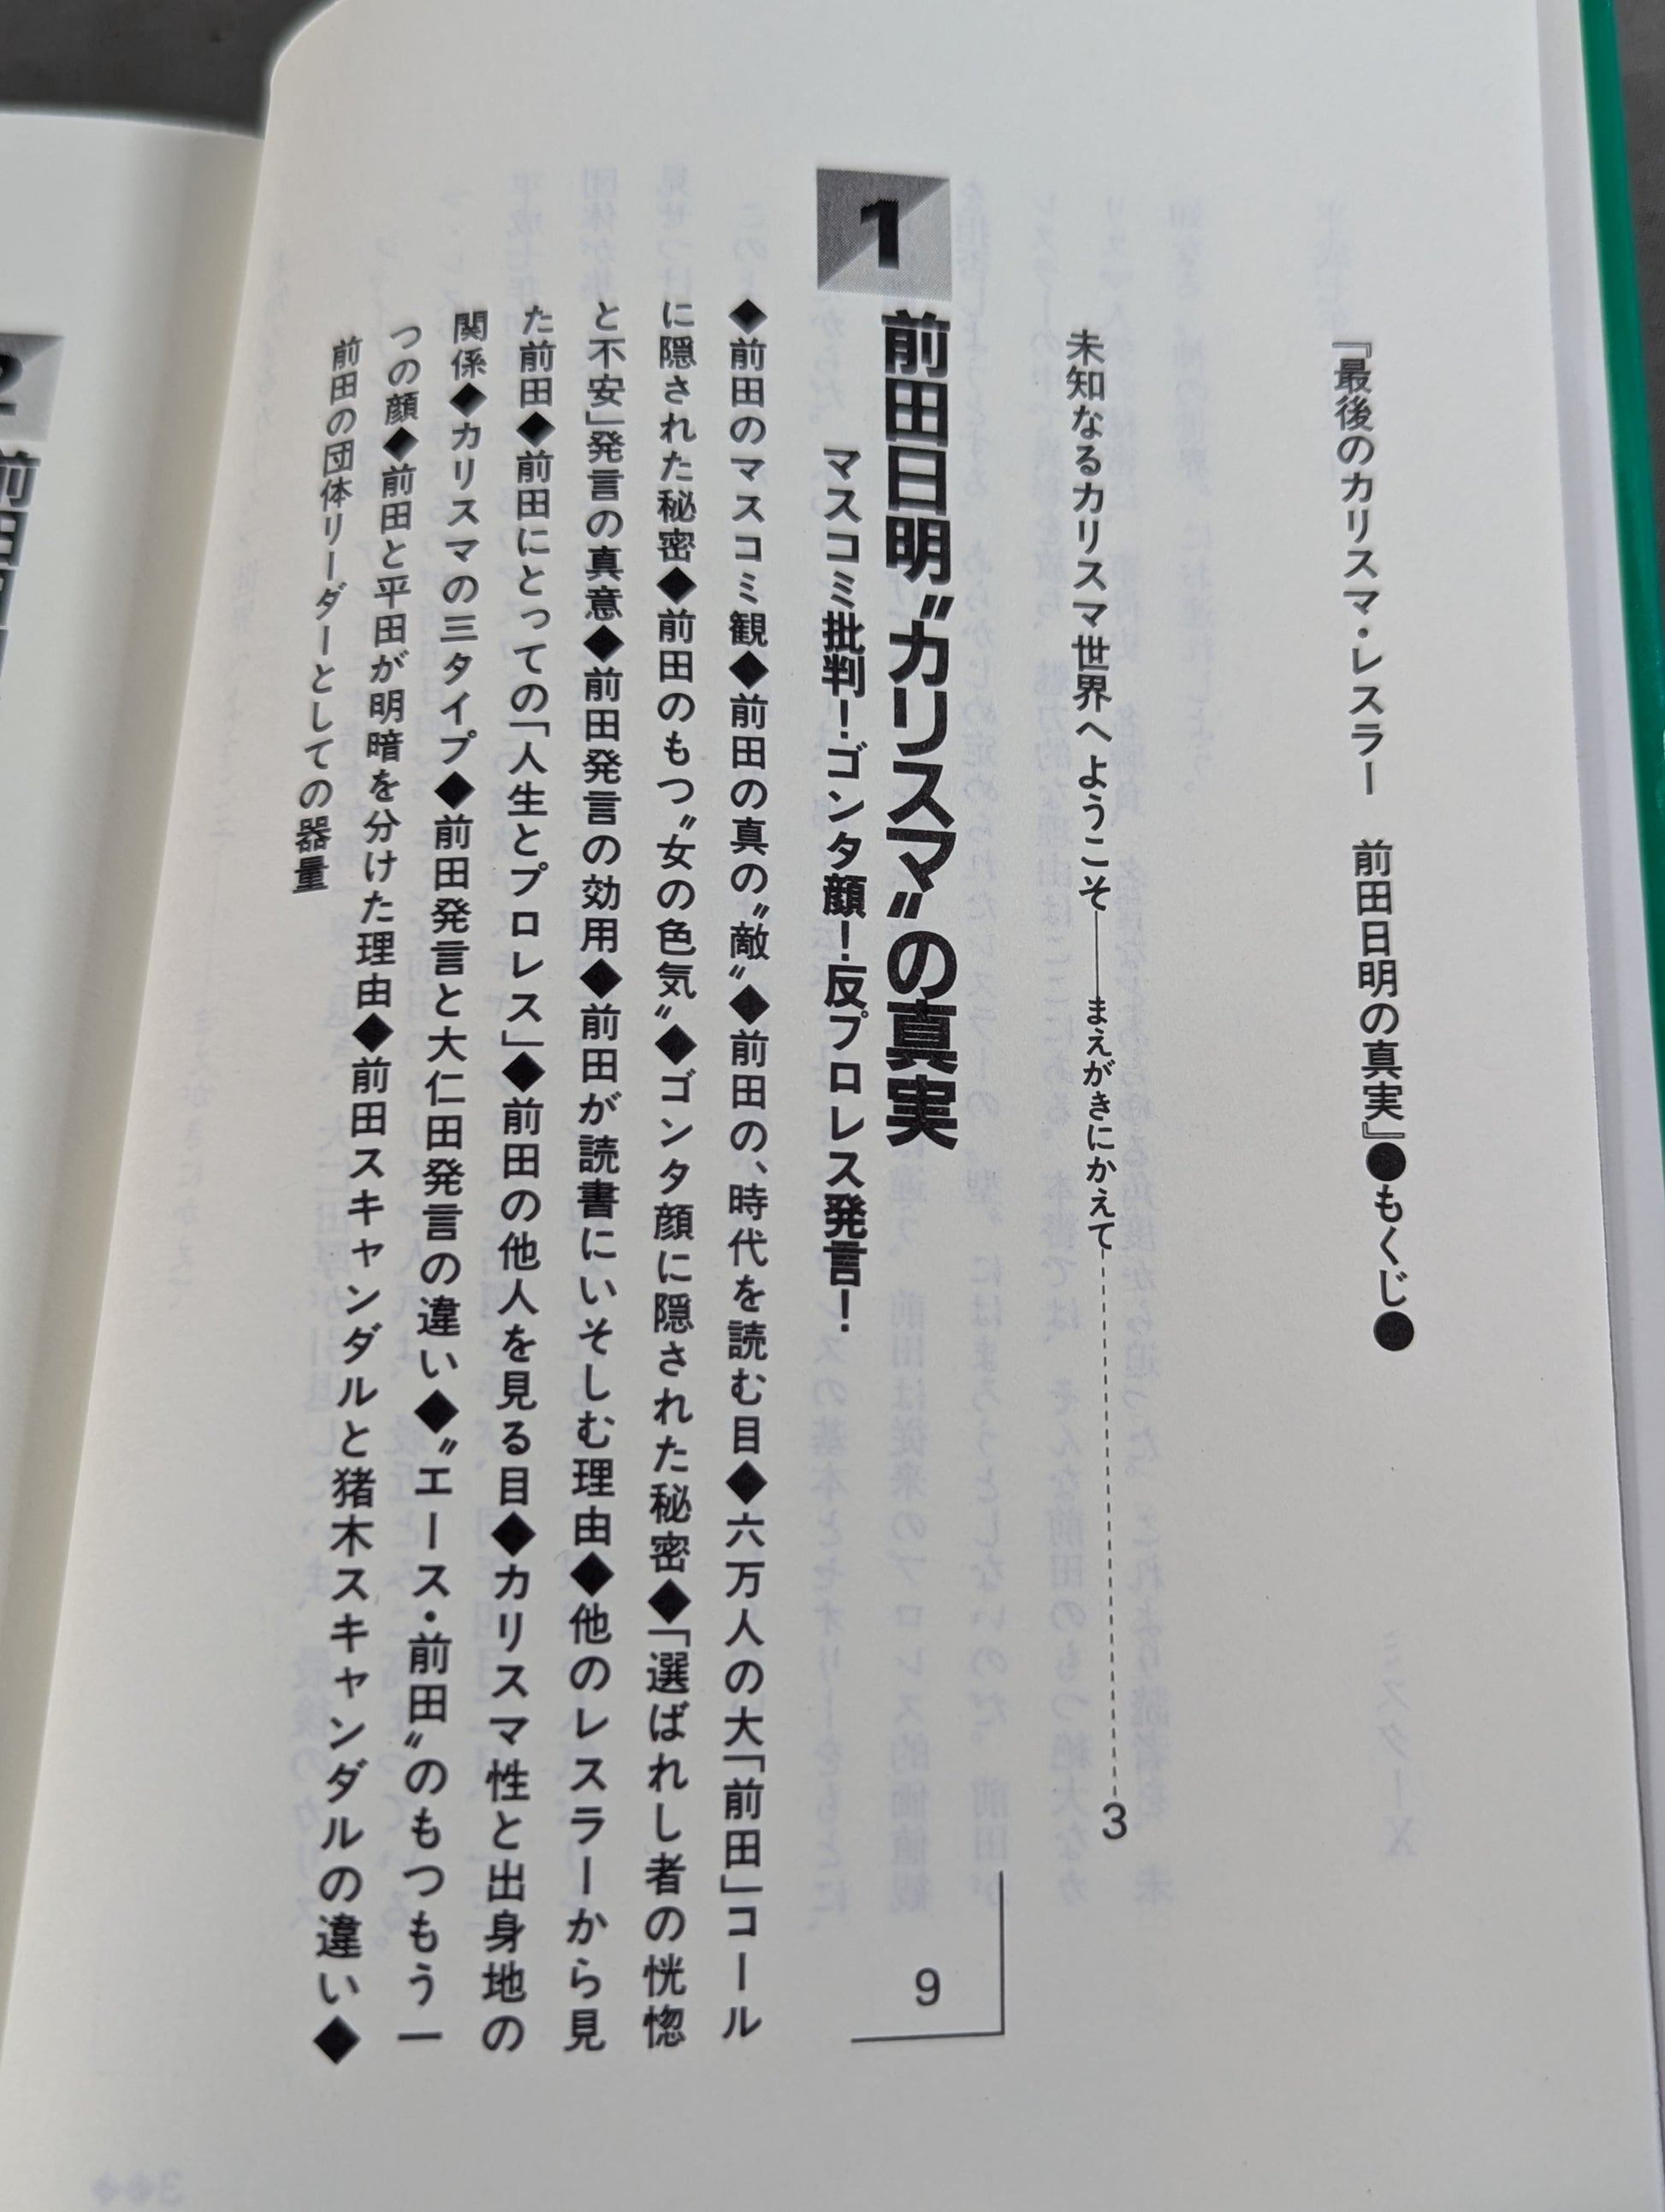 『最後のカリスマ・レスラー　前田日明の真実』●もくじ●
未知なるカリスマ世界へようこそ――まえがきにかえて 3
1
前田日明〝カリスマ〟の真実 9
マスコミ批判！ゴンタ顔！反プロレス発言！
◆前田のマスコミ観◆前田の真の〝敵〟◆前田の、時代を読む目◆六万人の大「前田」コール
に隠された秘密◆前田のもつ〝女の色気〟◆ゴンタ顔に隠された秘密◆「選ばれし者の恍惚
と不安」発言の真意◆前田発言の効用◆前田が読書にいそしむ理由◆他のレスラーから見
た前田◆前田にとっての「人生とプロレス」◆前田の他人を見る目◆カリスマ性と出身地の
関係◆カリスマの三タイプ◆前田発言と大仁田発言の違い◆〝エース・前田〟のもつもう一
つの顔◆前田と平田が明暗を分けた理由◆前田スキャンダルと猪木スキャンダルの違い◆
前田の団体リーダーとしての器量
2